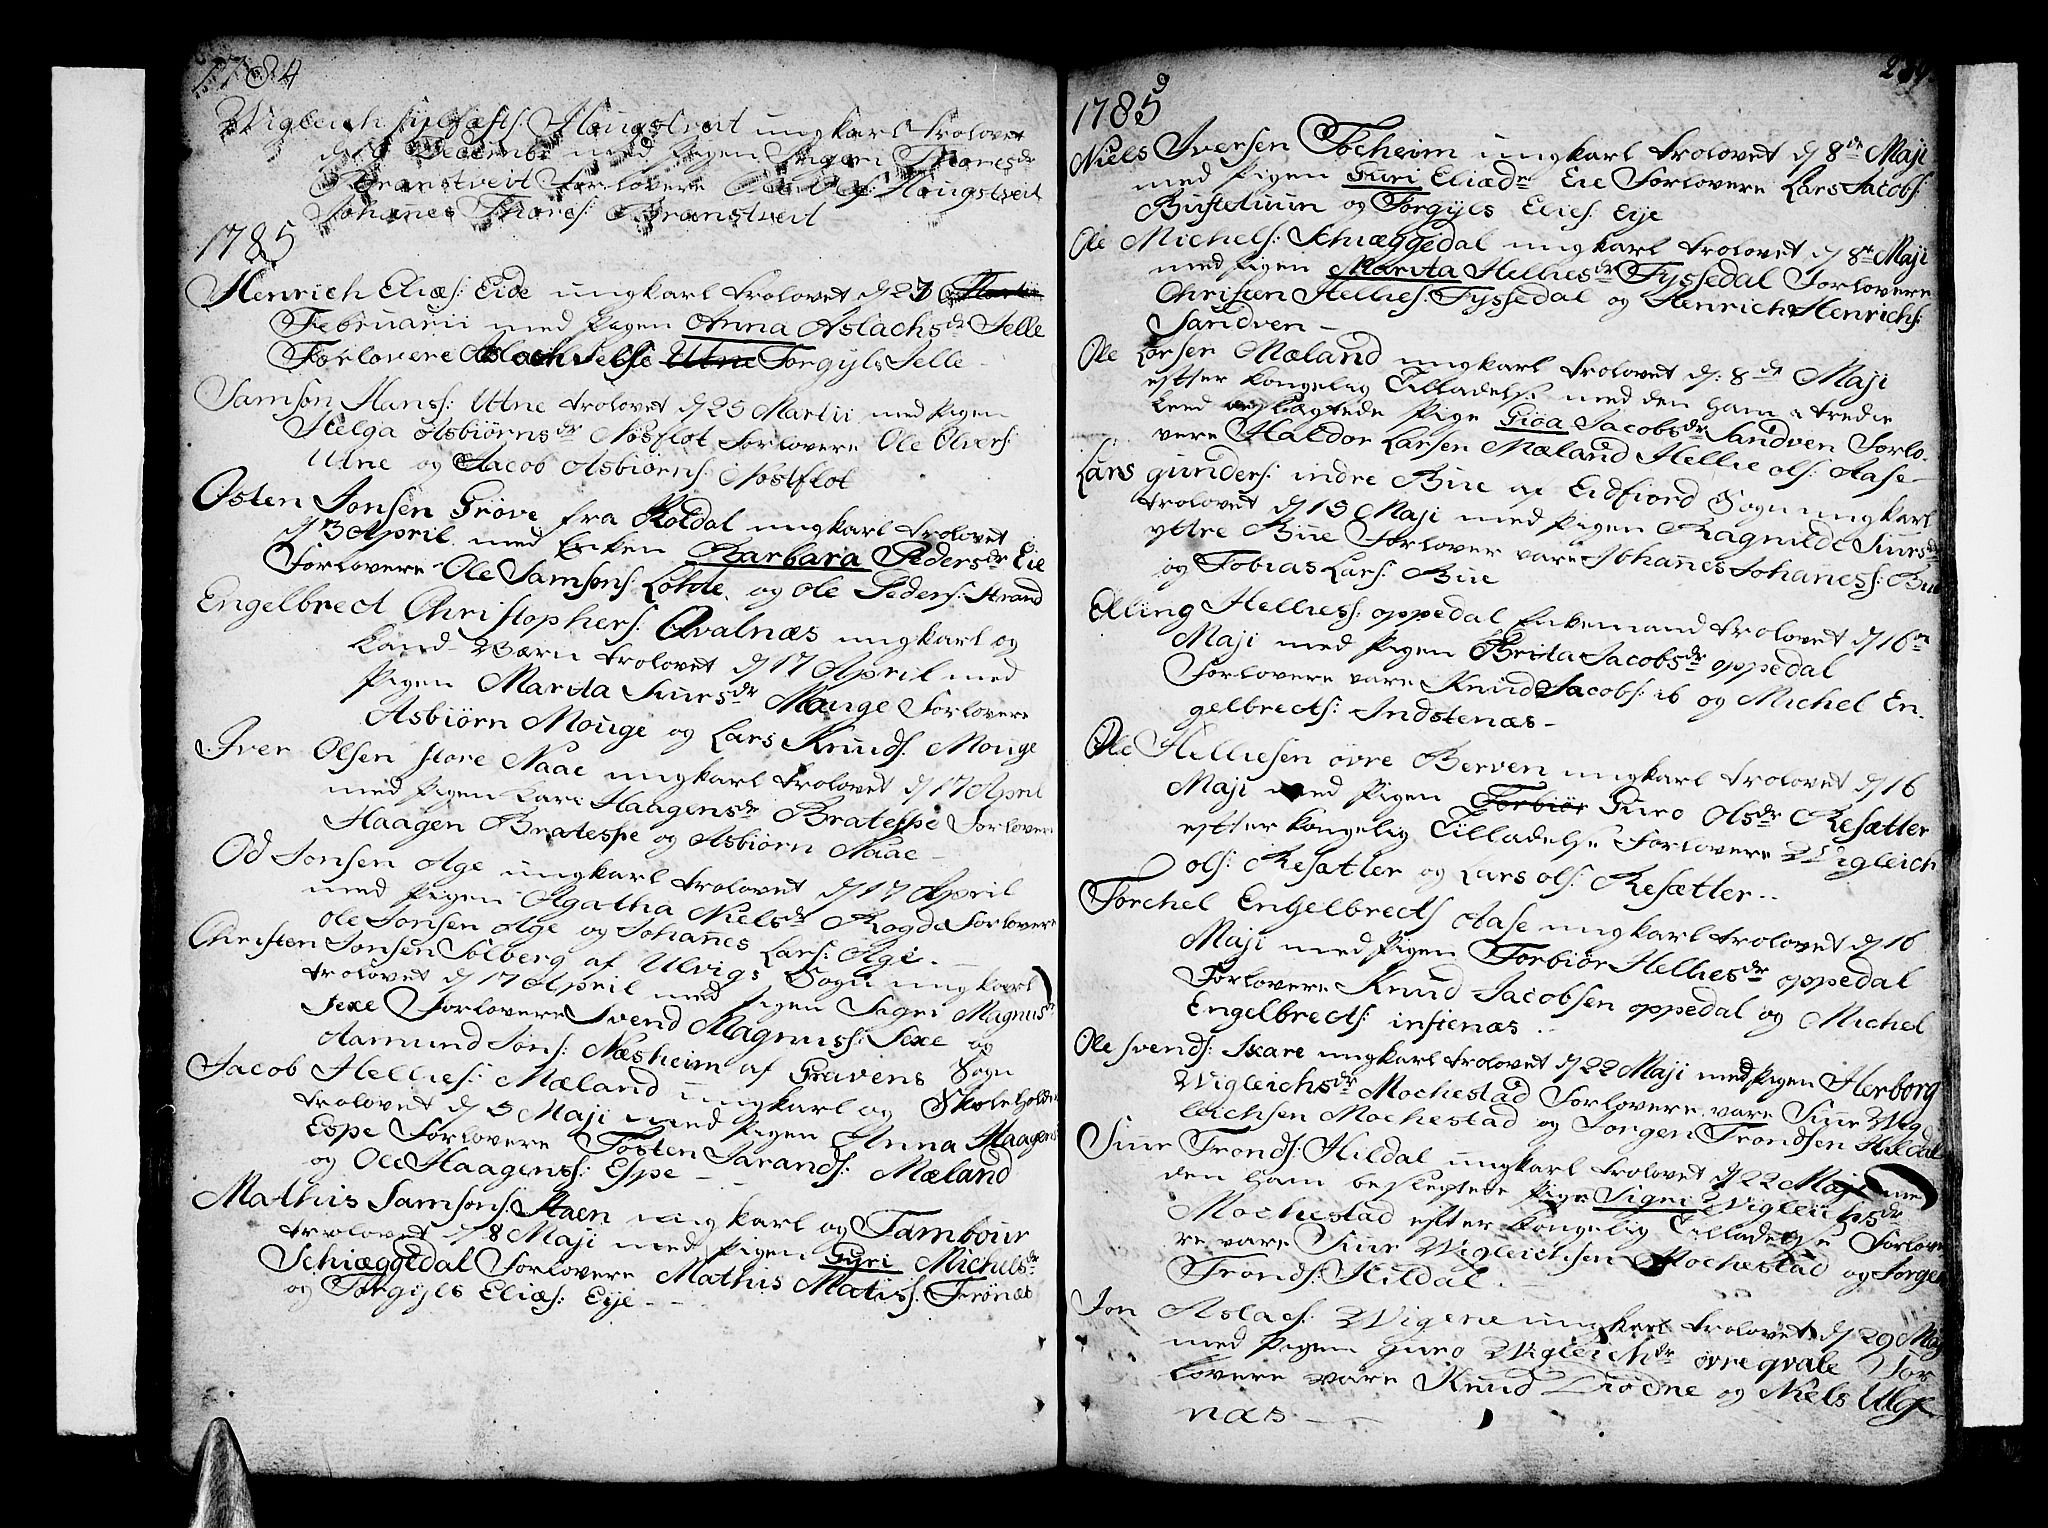 1784
Wigleich Haugstveit ungkarl trolovet
d Decembr med Pigen Ingeri Thoresdr
Branstveit Forlovere Haugstveit
Johannes Thores: Branstveit
1785
Henrich Eliæs: Eide ungkarl trolovet d 23
Februarii med Pigen Anna Aslachsdr Selle
Forlovere Aslach Selle Utne Torgyls Selle
Samson Hans: Utne trolovet d 25 Martii med Pigen
Helga Asbiørnsdr Nøstflot Forlovere Ole Olvers:
Utne og Jacob Asbiørns: Nøstflot
Østen Jonsen Grøve fra Røldal ungkarl trolovet
d 3 April med Enken Barbara Pedersdr Eie
Forlovere Ole Samsøns: Lothe og Ole Peders: Strand
Engelbrect Christophers: Qvalnæs ungkarl og
Land-Værn trolovet d 17 April med
Pigen Marita Siursdr Mauge Forlovere
Asbiørn Mouge og Lars Knuds: Mouge
Iver Olsen store Naae ungkarl trolovet d 17 April
med Pigen Kari Haagensdr Bratespe Forlovere
Haagen Bratespe og Asbiørn Naae
Od Jonsen Age ungkarl trolovet d 17 April
med Pigen Agatha Nielsdr Rogde Forlovere
Ole Jonsen Age og Johannes Lars: Age.
Christen Jonsen Solberg af Ulvigs Sogn ungkarl
trolovet d 17 April med Pigen Sigri Magnusdr
Sexe Forlovere Svend Magnuss: Sexe og
Aamund Jons: Næsheim af Gravens Sogn
Jacob Hellies: Mæland ungkarl og Skoleholder
trolovet d 5 Maji med Pigen Anna Haagens
Espe Forlovere Tosten Jarands: Mæland
og Ole Haagens: Espe
Mathis Samsons: Staen ungkarl og Tambour
trolovet d 8 Maji med Pigen Gyri Michelsdr
Schiæggedal Forlovere Mathis Matiss: Frønæs
og Torgyls Eliæs: Eije
1785
Niels Iversen Tocheim ungkarl trolovet d 8de Maji
med Pigen Guri Eliædr Eie Forlovere Lars Jacobs:
Bustetuun og Torgyls Elies: Eije
Ole Michels: Schiæggedal ungkarl trolovet d 8de Maji
med Pigen Marita Helliesdr Tyssedal Forlovere
Christen Hellies: Tyssedal og Henrich Henrichs:
Sandven
Ole Larsen Mæland ungkarl trolovet d: 8de Maji
efter kongelig Tilladelse med den ham i tredie
Leed beslægtede Pige Gioa Jacobsdr Sandven Forlo-
vere Haldor Larsen Mæland Hellie ols: Aase
Lars gunders: indre Bue af Eidfiord Sogn ungkarl
trolovet d 15 Maji med Pigen Ragnilde Siursdr
yttre Bue Forlover vare Johannes Johanness: Bue
og Tobias Lars: Bue
Elling Helliess: oppedal Enkemand trolovet d 16de
Maji med Pigen Brita Jacobsdr oppedal
Forlovere vare Knud Jacobs: ib og Michel En-
gelbrects: Indstenæs
Ole Helliesen øvre Berven ungkarl trolovet d 16
Maji med Pigen Torbiør Guro Olsdr Resætter
efter kongelig Tilladelse Forlovere Wigleich
ols: Resætter og Lars ols: Resætter
Torchel Engelbrects Aase ungkarl trolovet d 16
Maji med Pigen Torbiør Helliesdr oppedal
Forlovere Knud Jacobsen oppedal og Michel
Engelbrects: instenæs
Ole Svends: Skare ungkarl trolovet d 22 Maji med Pigen Herborg
Wigleichsdr Mochestad Forlovere vare Siur Wig
leichsen Mochestad og Jorgen Trondsen Hildal
Siur Tronds: Hildal ungkarl trolovet d 22 Maji med
den ham beslegtede Pige Sigri Wigleichsdr
Mochestad efter kongelig Tilladelse Forlove
re vare Siur Wigleichsen Mochestad og Jorgen
Tronds: Hildal
Jon Aslacs: Wigene ungkarl trolovet d 29 Maj
med Pigen guro Wigleichsdr øvre qvale For
lovere vare Knud Diødne og Niels Ulge
næs